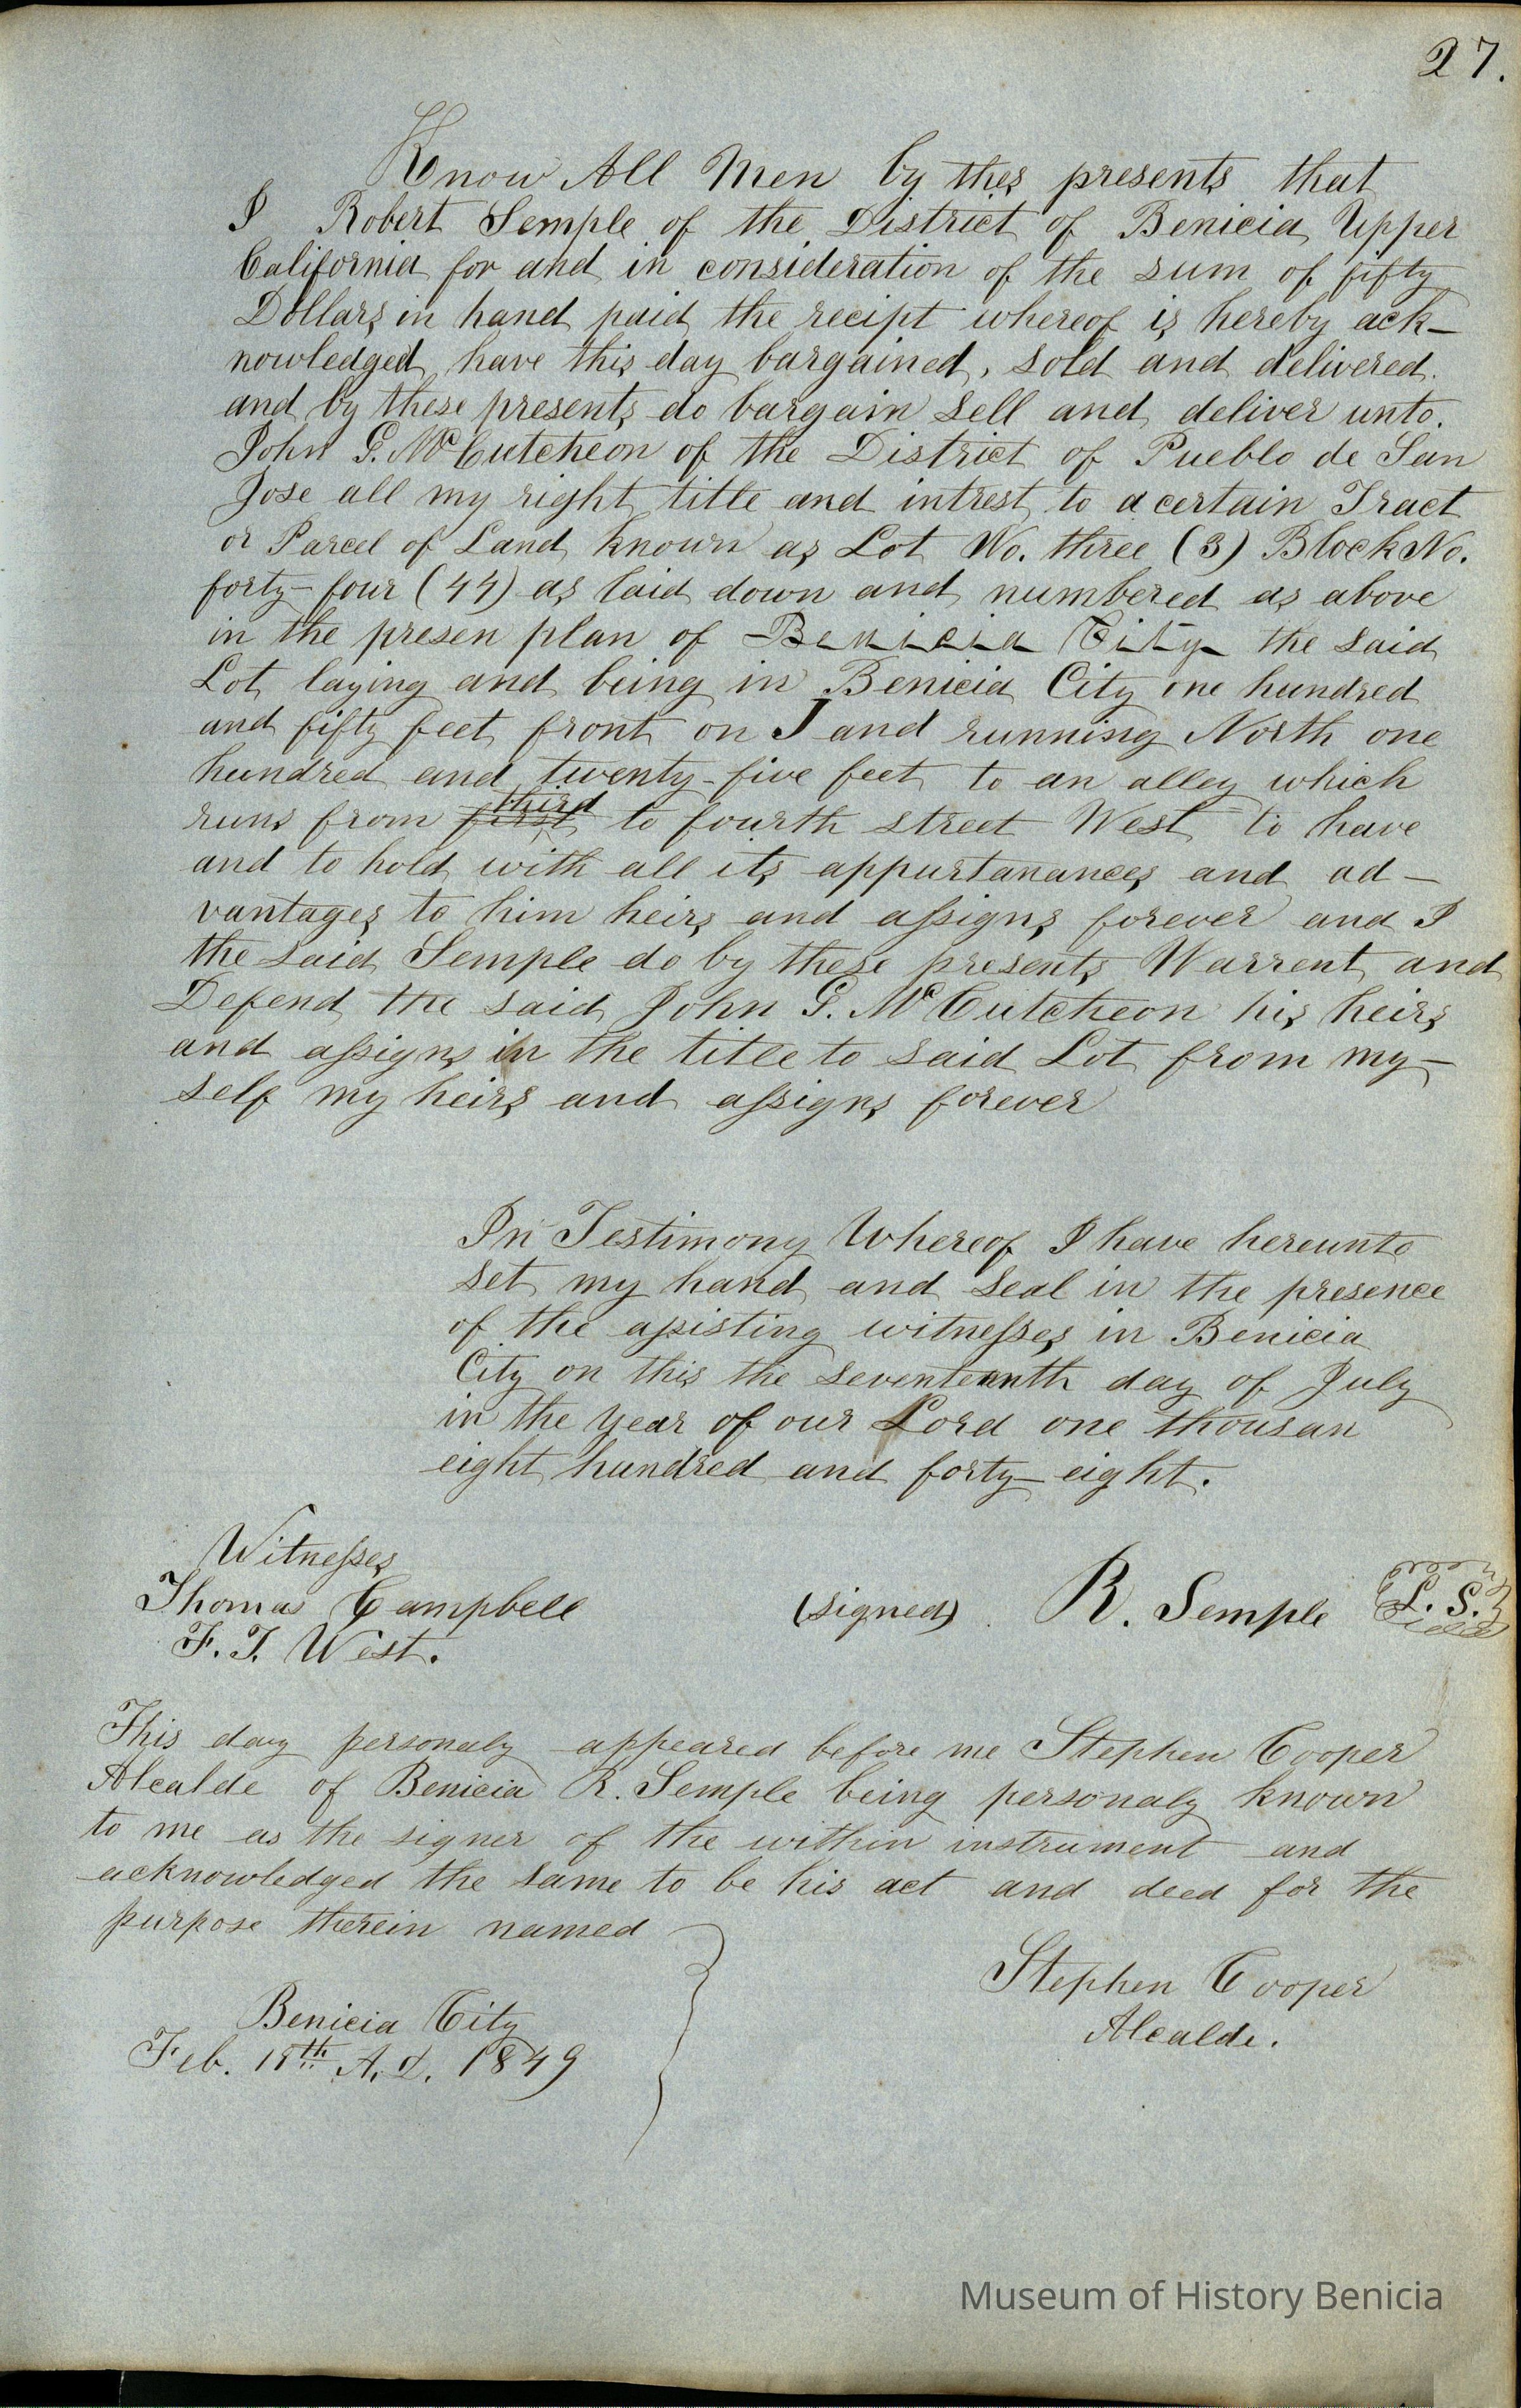 27.
Know All Men by thes presents that
I Robert Semple of the District of Benicia Upper
California for and in consideration of the sum of fifty
Dollars in hand paid the recipt whereof is hereby ack-
nowledged have this day bargained, sold and delivered.
and by these presents do bargain sell and deliver unto.
John G. McCutcheon of the District of Pueblo de San
Jose all my right title and intrest to a certain Tract
or Parcel of Land known as Lot No. three (3) Block No.
forty-four (44) as laid down and numbered as above
in the presen plan of Benicia City the said
Lot laying and being in Benicia City one hundred
and fifty feet front on J and running North one
hundred and twenty-five feet to an alley which
runs from first third to fourth street West to have
and to hold with all its appurtanances and ad-
vantages to him heirs and assigns forever and I
the said Semple do by these presents Warrent and
Defend the said John G. McCutcheon his heirs
and assigns in the title to said Lot from my-
self my heirs and assigns forever
In Testimony Whereof I have hereunto
set my hand and seal in the presence
of the assisting witnesses in Benicia
City on this the seventeenth day of July
in the year of our Lord one thousan
eight hundred and forty-eight.
Witnesses
Thomas Campbell
(signed) R. Semple L. S.
F. T. West.
This day personaly appeared before me Stephen Cooper
Alcalde of Benicia R. Semple being personaly known
to me as the signer of the within instrument and
acknowledged the same to be his act and deed for the
purpose therein named
Stephen Cooper
Alcalde.
Benicia City
Feb. 18th A. D. 1849
Museum of History Benicia